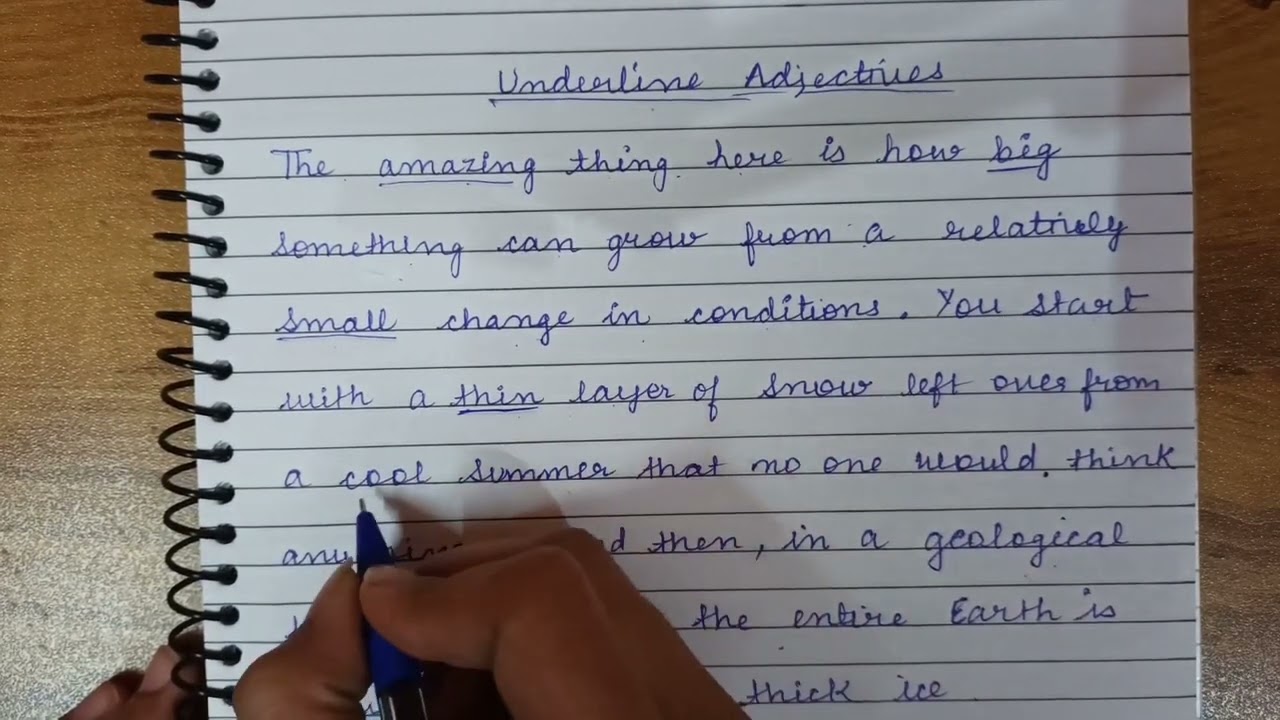 Underline Adjectives
The amazing thing here is how big
something can grow from a relatively
small change in conditions. You start
with a thin layer of snow left over from
a cool summer that no one would. think
then, in a geological
the entire Earth is
thick ice